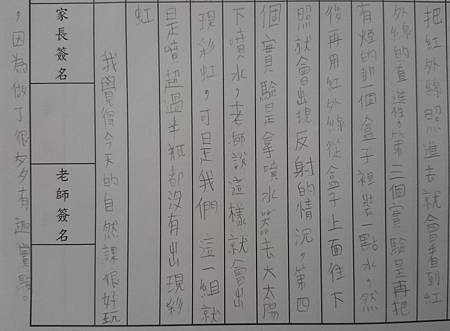 把紅外線照進去就會看到紅
外線的直進性,第三個實驗是再把
有燈的那一個盒子裡裝一點水,然
後再用紅外線從盒子上面往下
照就會出現反射的情況,第四
個實驗是拿噴水器去大太陽
下噴水,老師說這樣就會出
現彩虹,可是我們這一組就
是噴超過半瓶都沒有出現彩
虹
我覺得今天的自然課很好玩
,因為做了很多有趣實驗。
家長簽名
老師簽名